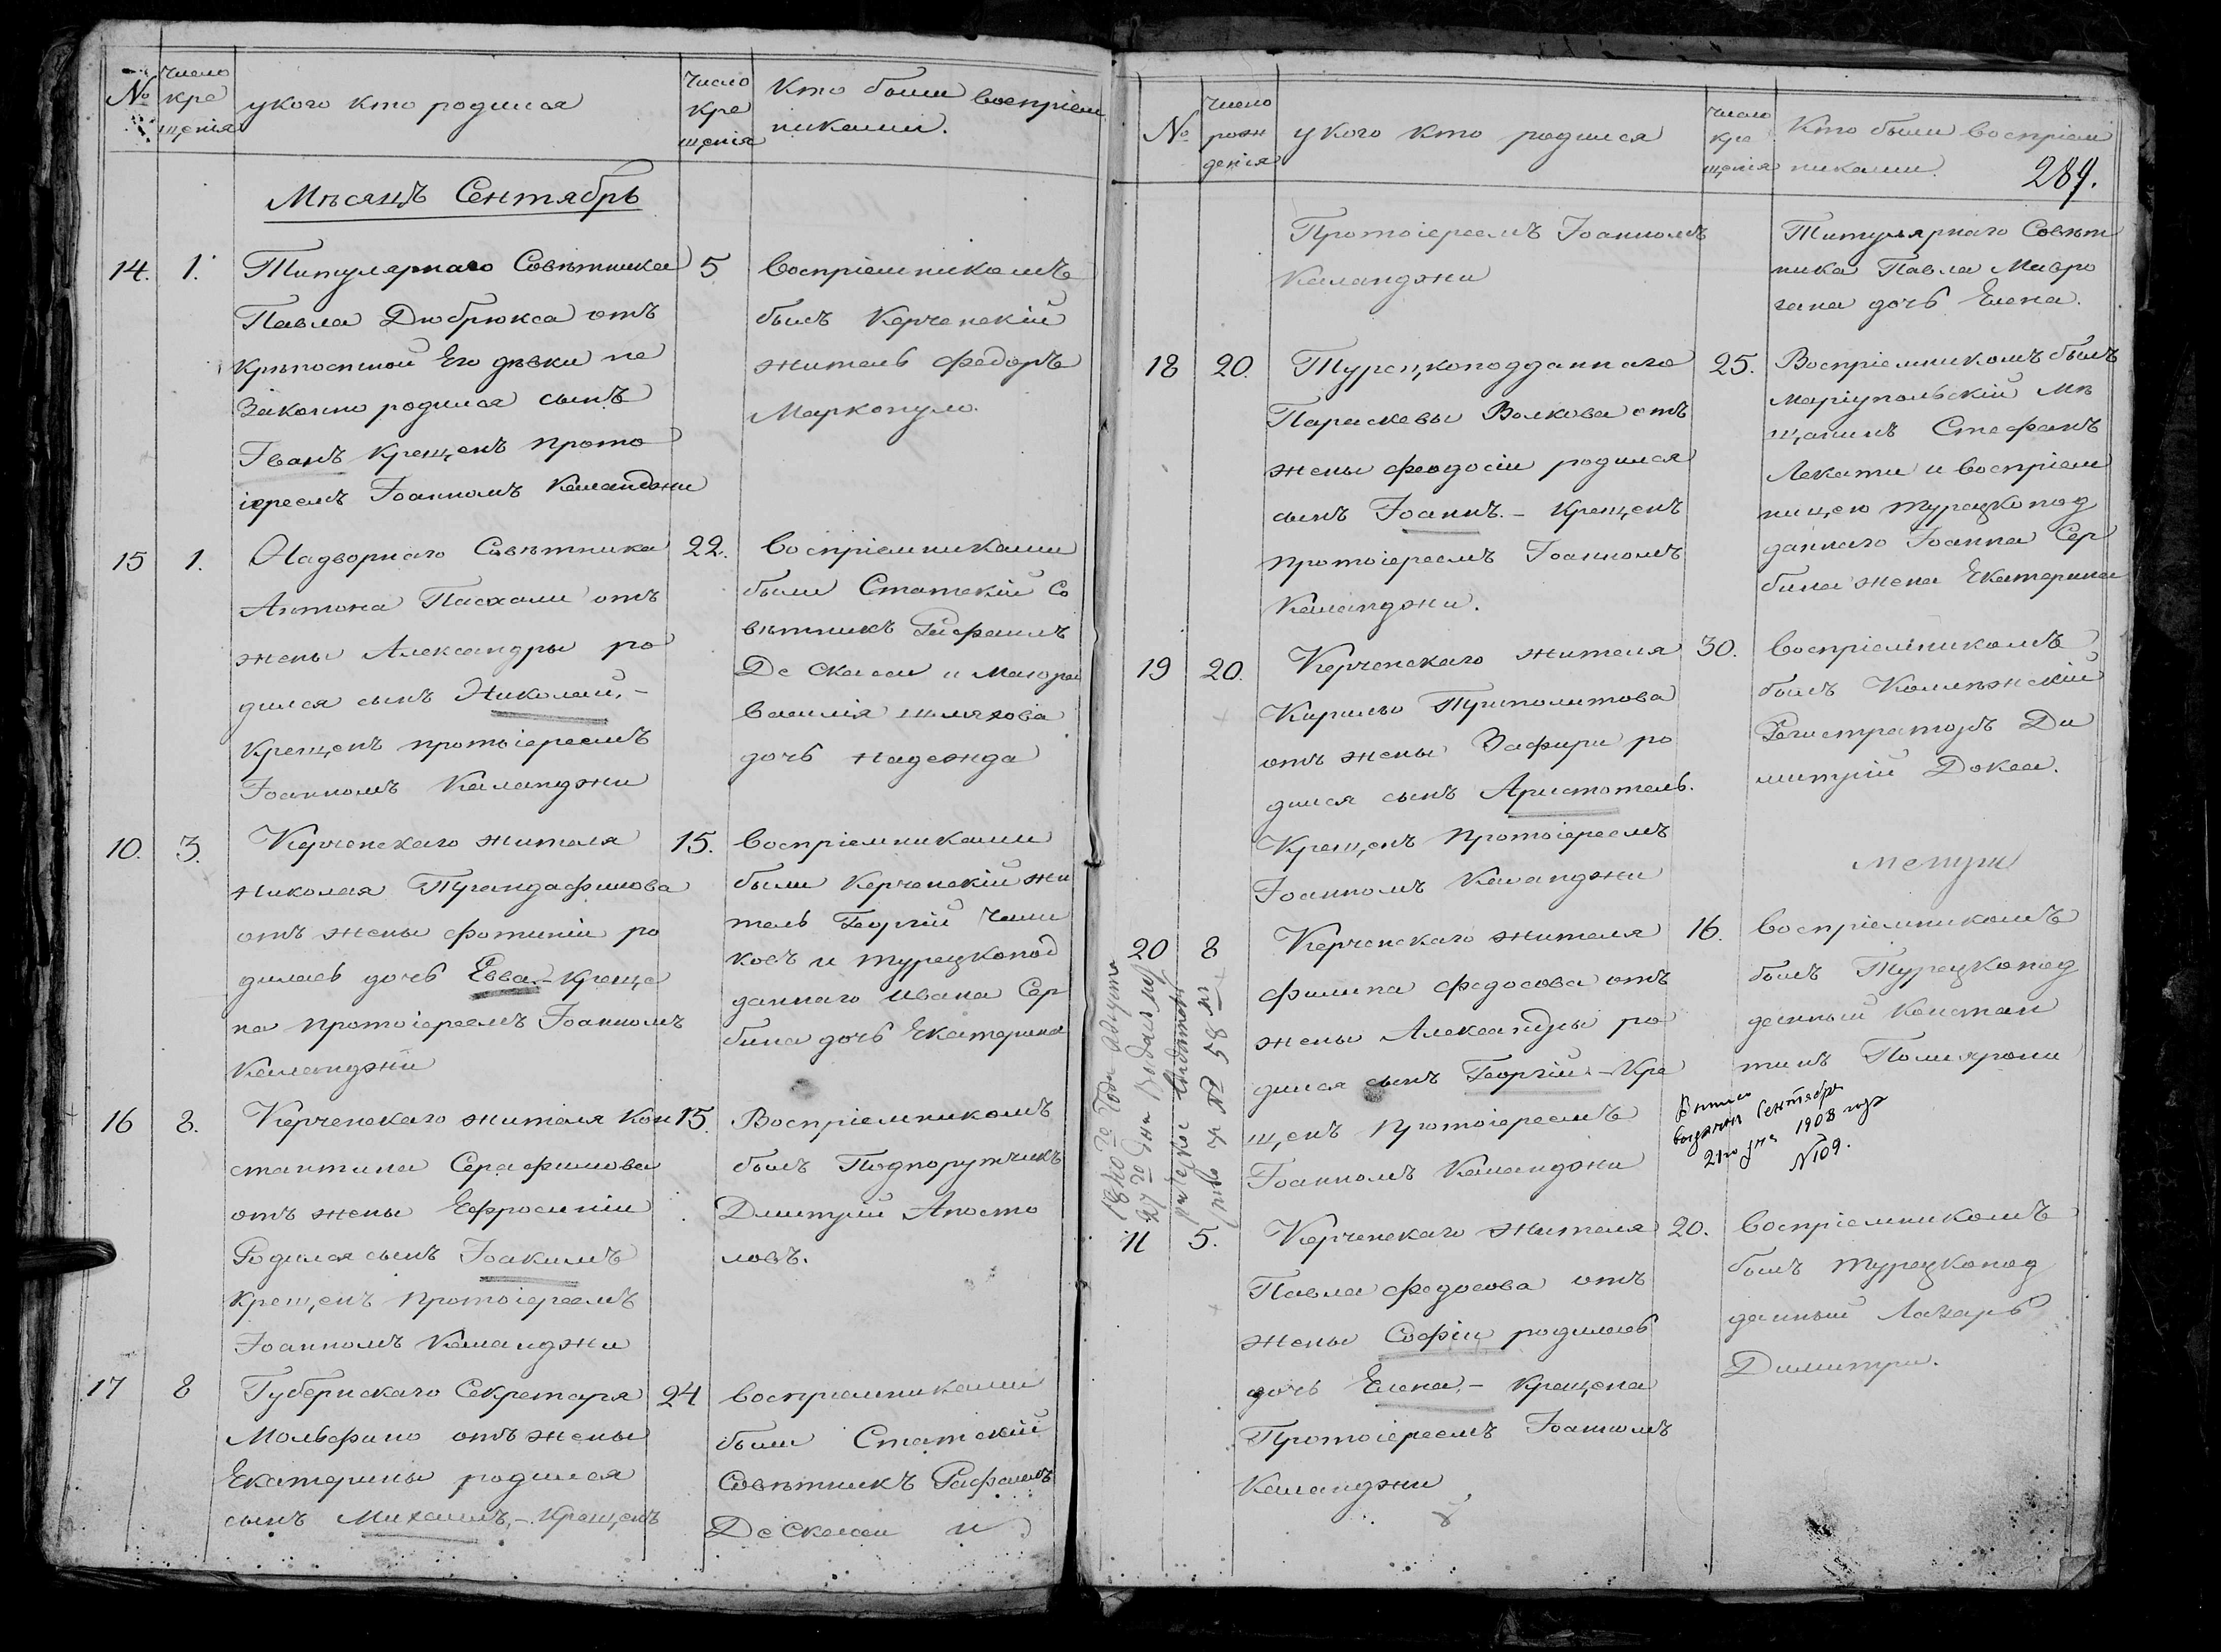 №
число
кре
щенія
укого кто родился
число
кре
щенія
Кто были воспріем
никами.
Мѣсяцъ Сентябрь
14.
1.
Титулярнаго Совѣтника
Павла Дюбрюкса отъ
крѣпостной Его дѣвки не
законно родился сынъ
Іванъ крещенъ прото
іереемъ Іоанномъ Каланджи
5
воспріемникомъ
былъ Керченскій
житель Федоръ
Маркопуло.
15
1.
Надворнаго Совѣтника
Антона Пасхали отъ
жены Александры ро
дился сынъ Николай. –
крещенъ протоіереемъ
Іоанномъ Каланджи
22.
воспріемниками
были Статскій Со
вѣтникъ Рафаилъ
Де Скасси и Маіора
василія шляхова
дочь надежда
10.
3.
Керченскаго жителя
николая Трандафилова
отъ жены фотиніи ро
дилась дочь Евва. – Креще
на протоіереемъ Іоанномъ
Каланджи
15.
воспріемниками
были Керченскій жи
тель Георгій
и турецкопод
даннаго ивана Сер
бина дочь Екатерина
16
8.
Керченскаго жителя Кон
стантина Серафимова
отъ жены Ефросиніи
Родился сынъ Іоакимъ
крещенъ протоіереемъ
Іоанномъ Каланджи
15.
Воспріемникомъ
былъ Подпоручикъ
Дмитрій Апосто
ловъ.
17
8
Губернскаго Секретаря
Мольфино отъ жены
Екатерины родился
сынъ Михаилъ, – Крещенъ
24
воспріемниками
были Статскій
Совѣтникъ Рафаилъ
Де Скасси и
№
число
рож
денія
укого кто родился
число
кре
щенія
Кто были воспріем
никами.
289.
Протоіереемъ Іоанномъ
Каланджи
Титулярнаго Совѣт
ника Павла Мавро
гана дочь Елена.
18
20.
Турецкоподданнаго
Параскевы Волкова отъ
жены феодосіи родился
сынъ Іоаннъ. – Крещенъ
протоіереемъ Іоанномъ
Каланджи.
25.
Воспріемникомъ былъ
Маріупольскій Мѣ
щанинъ Стефанъ
Лекати и воспріем
ницею турецкопод
даннаго Іоанна Сер
бина жена Екатерина
19
20.
Керченскаго жителя
Кирилъо Триполитова
отъ жены Зафири ро
дился сынъ Аристотель.
Крещенъ Протоіереемъ
Іоанномъ Каланджи
30.
воспріемникомъ
былъ Коллежскій
Регистраторъ Ди
митрій Докса.
20
8
Керченскаго жителя
филипа федосова отъ
жены Александры ро
дился сынъ Георгій. – Кре
щенъ Протоіереемъ
Іоанномъ Каланджи
16.
воспріемникомъ
былъ Турецкопод
данный констан
тинъ Полихрони
1840го Года Августа
27го дня Выдано
свидѣтель
ство за № 58м
Сентября
21го дня 1908 года
№109.
11
5.
Керченскаго Жителя
Павла федосова отъ
жены Софіи родилась
дочь Елена, – крещена
Протоіереемъ Іоанномъ
Каланджи
20.
воспріемникомъ
былъ турецкопод
данный Лазарь
Димитри.